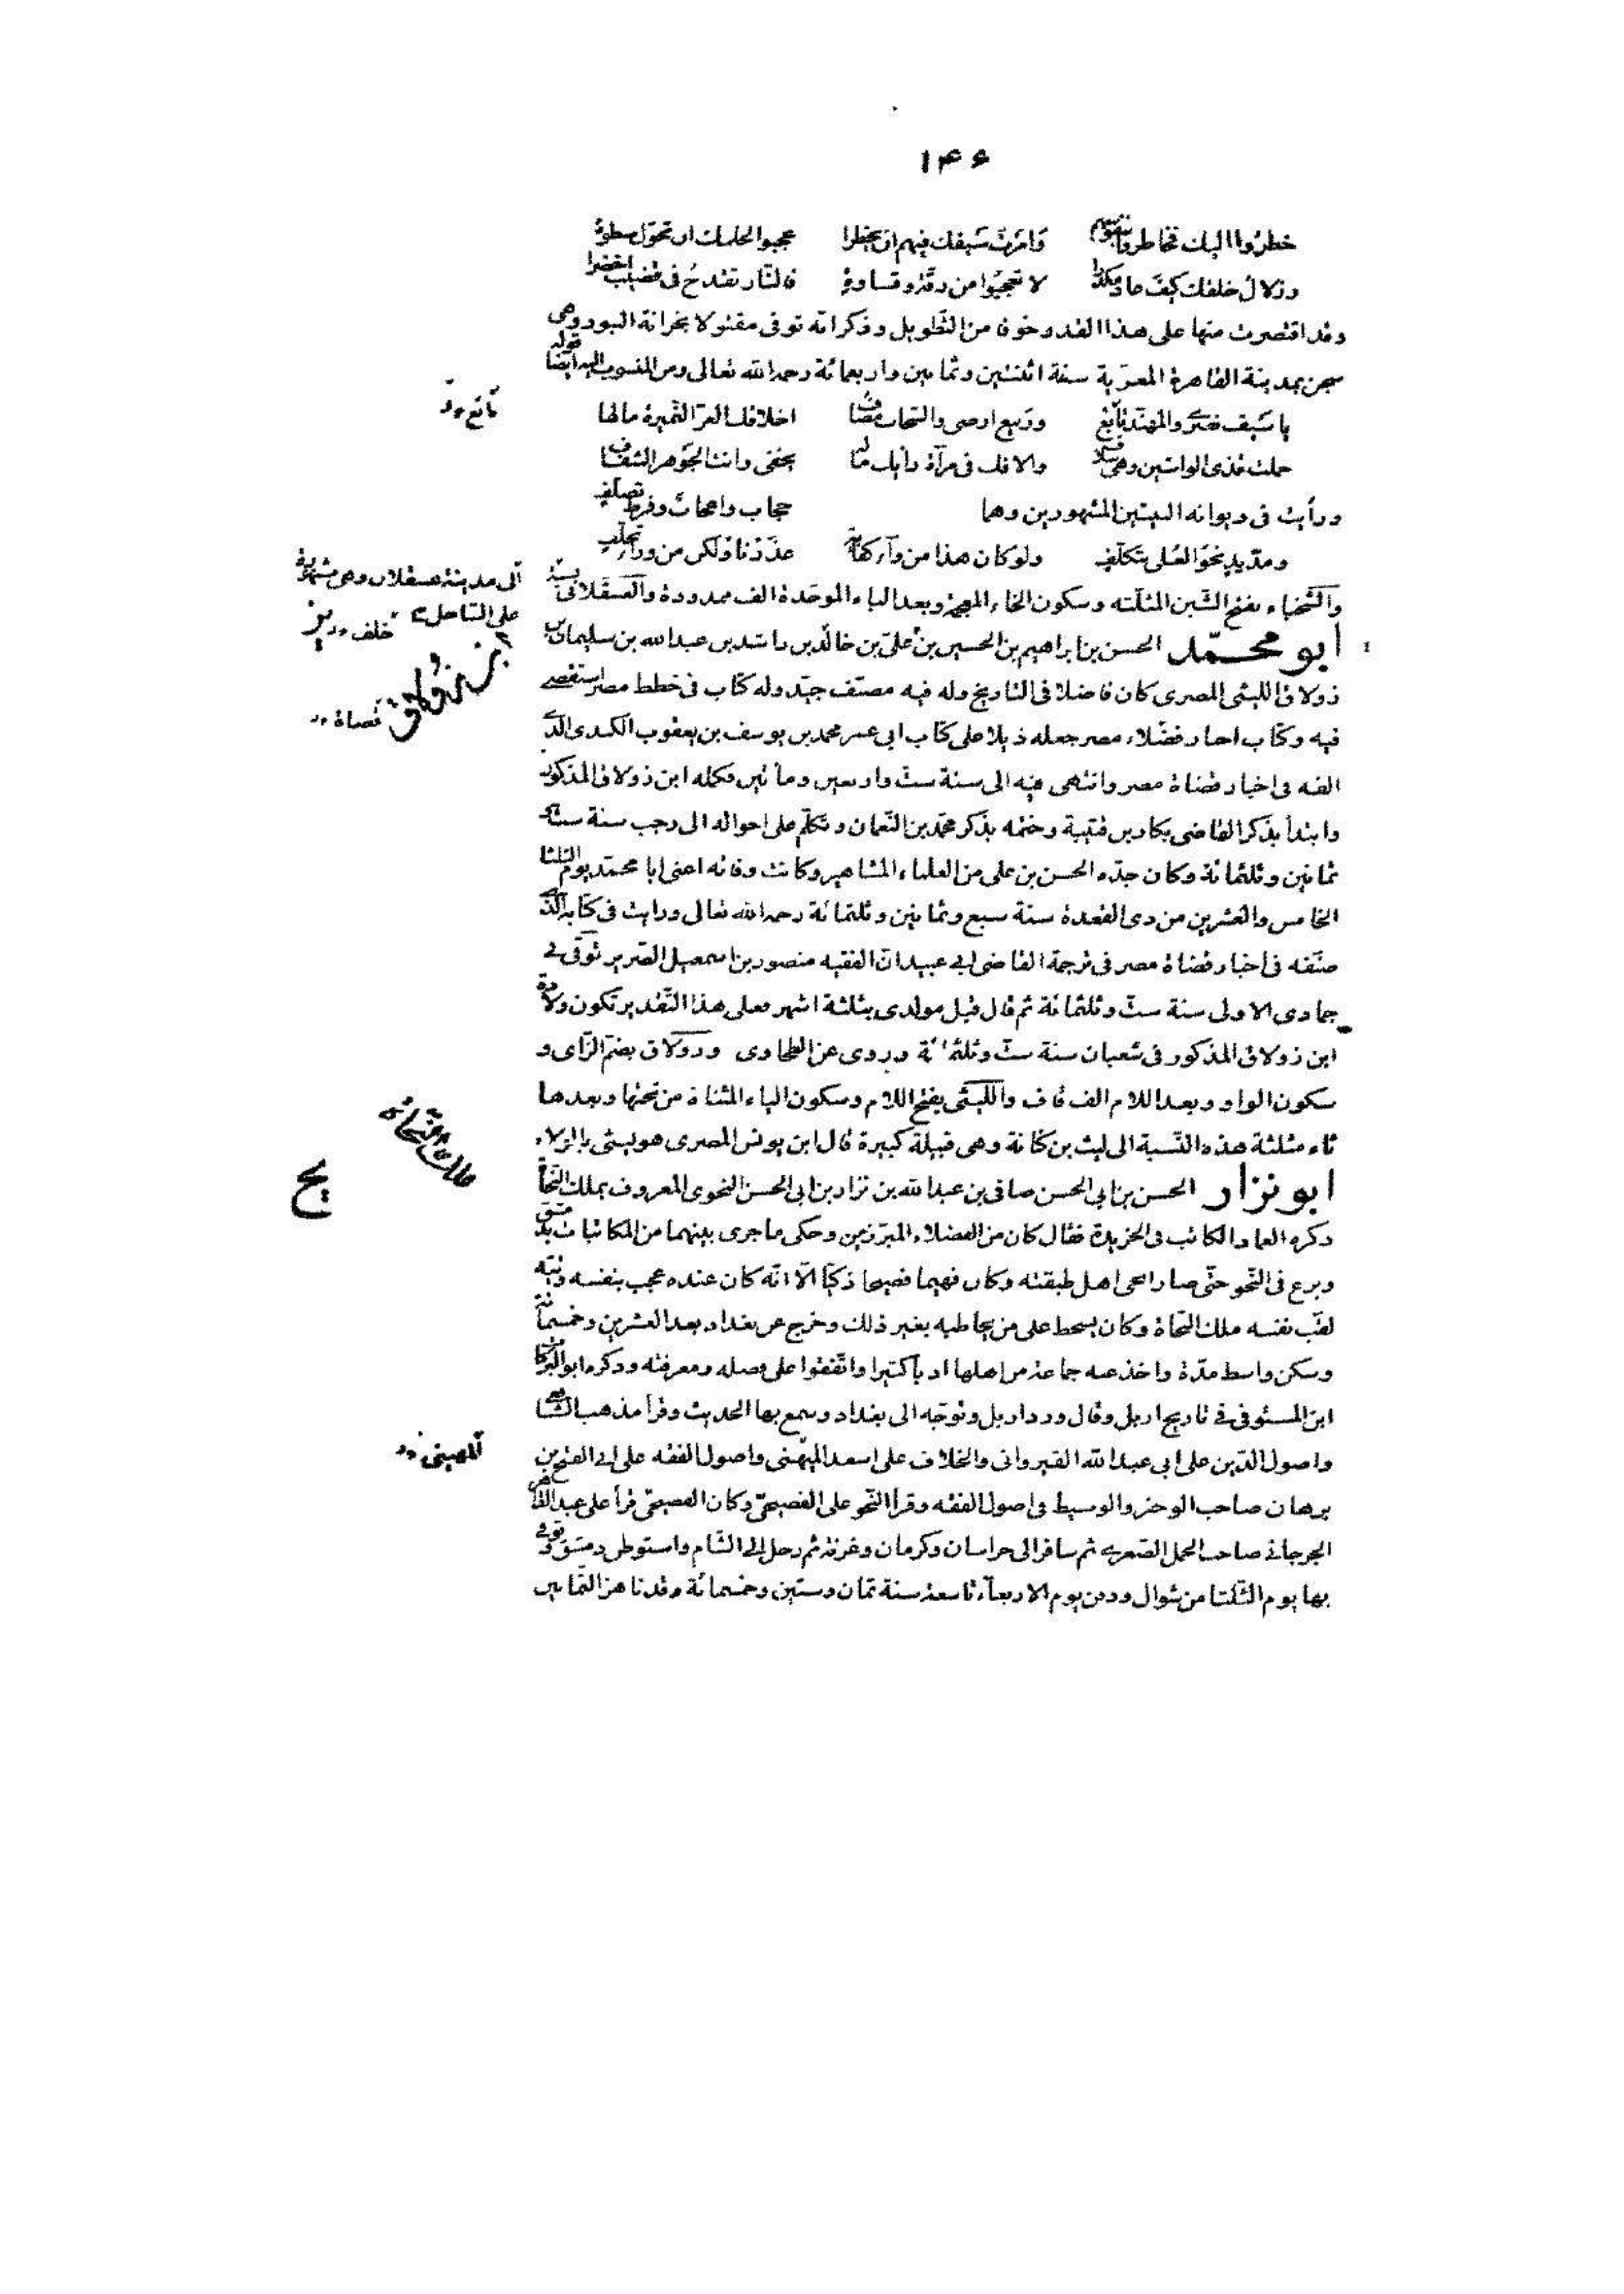 ١٤٦
خطروا اليك فخاطروا بنفوسهم وامرت سيفك فيهم ان يخطرا عجبوا لحلمك ان تحول سطوة
وزلال خلقك كيف عاد مكدرا لا تعجبوا من رقة وقساوة فالنار تقدح فى قضيب اخضرا
وقد اقتصرت منها على هذا القدر خوفا من التطويل وذكر انه توفى مقتولا بخزانة البنود وهى
سجن بمدينة القاهرة المعزية سنة اثنتين وثمانين واربعمائة رحمه الله تعالى ومن المنسوب اليه ايضا قوله
يا سيف والمهند نابغ وربيع ارضى والسحاب مصاف اخلاقك الغر النميرة مالها
حملت قذى الواشين وهى سلاف والافك فى مرآة رأيك ماله يخفى وانت الجوهر الشفاف
ورأيت فى ديوانه البيتين المشهورين وهما حجاب واعجاب وفرط تصلف
ومد يد نحو العلى بتكلف ولو كان هذا من وراء كفاية عذرنا ولكن من وراء تخلف
والشخباء بفتح الشين المثلثه وسكون الخاء المعجمة وبعد الباء الموحدة الف ممدودة والعسقلانى نسبة
الى مدينة عسقلان وهى مشهورة
على الساحل
ابو محمد الحسن بن ابراهيم بن الحسين بن على بن خالد بن راشد بن عبد الله بن سليمان بن
زولاق الليثى المصرى كان فاضلا فى التاريخ وله فيه مصنف جيد وله كتاب فى خطط مصر استقصى
فيه وكتاب اخبار فضلاء مصر جعله ذيلا على كتاب ابى عمر محمد بن يوسف بن يعقوب الكندى الذى
الفه فى اخبار قضاة مصر وانتهى فيه الى سنة ست واربعين ومائتين فكمله ابن زولاق المذكور
وابتدأ بذكر القاضى بكار بن قتيبة وختمه بذكر محمد بن النعمان وتكلم على احواله الى رجب سنة ست و
ثمانين وثلثمائة وكان جده الحسن بن على من العلماء المشاهير وكانت وفاته اعنى ابا محمد يوم الثلثا
الخامس والعشرين من ذى القعدة سنة سبع وثمانين وثلثمائة رحمه الله تعالى ورايت فى كتابه الذى
صنفه فى اخبار قضاة مصر فى ترجمة القاضى ابى عبيد ان الفقيه منصور بن اسمعيل الضرير توفى فى
جمادى الاولى سنة ست وثلثمائة ثم قال قبل مولدى بثلثة اشهر فعلى هذا التقدير تكون ولادة
ابن زولاق المذكور فى شعبان سنة ست وثلثمائة وروى عن الطحاوى وزولاق بضم الزاى و
سكون الواو وبعد اللام الف قاف والليثى بفتح اللام وسكون الياء المثناة من تحتها وبعدها
ثاء مثلثة هذه النسبة الى ليث بن كنانة وهى قبيلة كبيرة قال ابن يونس المصرى هو ليثى بالولاء
ابو نزار الحسن بن ابى الحسن صافى بن عبد الله بن نزار بن ابى الحسن النحوى المعروف بملك النحاة
ذكره العماد الكاتب فى الخريدة فقال كان من الفضلاء المبرزين وحكى ما جرى بينهما من المكاتبات بدمشق
وبرع فى النحو حتى صار انحى اهل طبقته وكان فهيما فصيحا ذكيا الا انه كان عنده عجب بنفسه وتيه
لقب نفسه ملك النحاة وكان يسخط على من يخاطبه بغير ذلك وخرج عن بغداد بعد العشرين وخمسمائة
وسكن واسط مدة واخذ عنه جماعة من اهلها ادبا كثيرا واتفقوا على فضله ومعرفته وذكره ابو البركات
ابن المستوفى فى تاريخ اربل وقال ورد اربل وتوجه الى بغداد وسمع بها الحديث وقرأ مذهب الشافعى
واصول الدين على ابى عبد الله القيروانى والخلاف على اسعد الميهنى واصول الفقه على ابى الفتح بن
برهان صاحب الوجيز والوسيط فى اصول الفقه وقرأ النحو على الفصيحى وكان الفصيحى قرأ على عبد القاهر
الجرجانى صاحب الجمل الصغرى ثم سافر الى خراسان وكرمان وغزنة ثم رحل الى الشام واستوطن دمشق وتوفى
بها يوم الثلثا من شوال ودفن يوم الاربعاء تاسعه سنة ثمان وستين وخمسمائة وقد ناهز الثمانين
خلف
ابن زولاق
قضاة
ملك النحاة